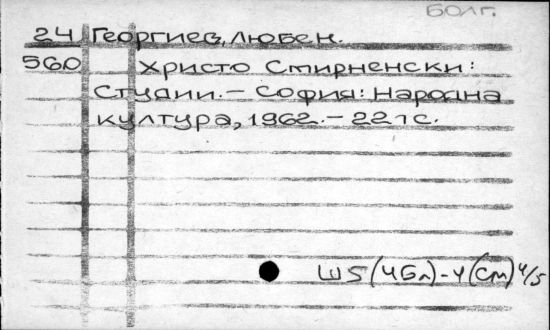 Болг.
24 Георгиев, Любен.
560 Христо Смирненски:
Студии. – София: Народна
култура, 1962. – 221 с.
Ш5(4Бл)-4(См)4/5